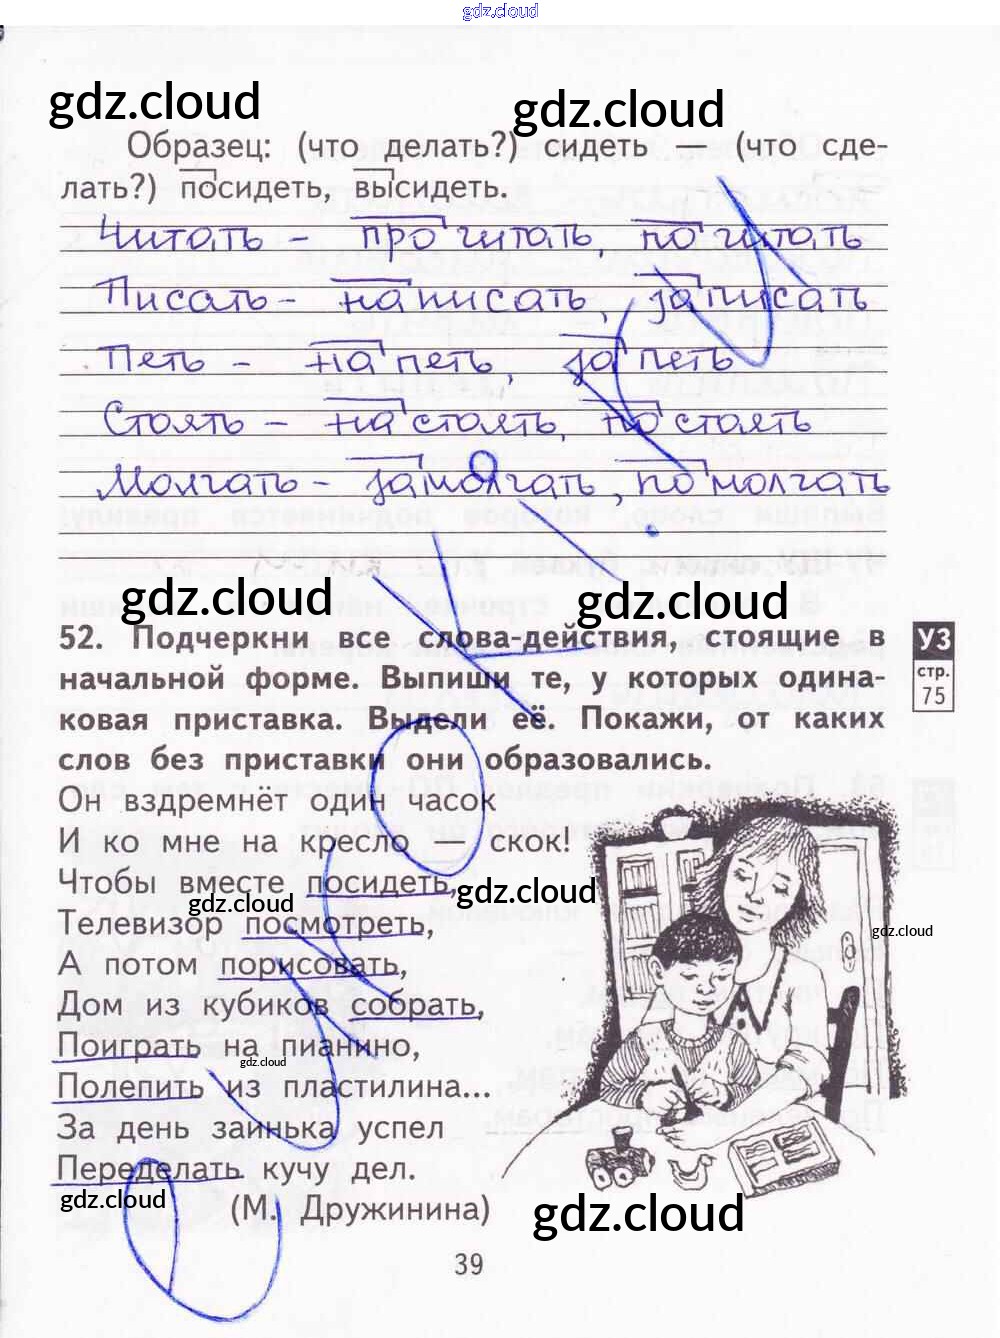 gdz.cloud
gdz.cloud
gdz.cloud
Образец: (что делать?) сидеть — (что сде-
лать?) посидеть, высидеть.
Читать – прочитать, почитать
Писать – написать, записать
Петь – напеть, запеть
Стоять – настоять, постоять
Молчать – замолчать, помолчать
gdz.cloud
gdz.cloud
52. Подчеркни все слова-действия, стоящие в
начальной форме. Выпиши те, у которых одина-
ковая приставка. Выдели её. Покажи, от каких
слов без приставки они образовались.
УЗ
стр.
75
Он вздремнёт один часок
И ко мне на кресло — скок!
Чтобы вместе посидеть,
gdz.cloud
gdz.cloud
Телевизор посмотреть,
gdz.cloud
А потом порисовать,
Дом из кубиков собрать,
Поиграть на пианино,
gdz.cloud
Полепить из пластилина...
За день заинька успел
Переделать кучу дел.
gdz.cloud
(М. Дружинина)
gdz.cloud
39